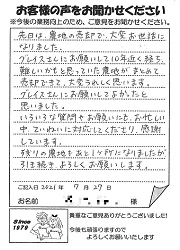 お客様の声をお聞かせください
※今後の業務向上のため、ご意見をお聞かせください。
先日は、農地の売却で、大変お世話に
なりました。
グレイスさんにお願いして10年近く経ち、
難しいかもと思っていた農地がまとめて
売却できて嬉しく思います。
グレイスさんにお願いしてよかったと
思いました。
いろいろな質問をメールにも、お忙しい
中、ていねいに対応してくださり、感謝
しています。
残りの農地もあと1ヶ所になりましたが
引き続き、よろしくお願いします。
ご記入日 2021年 7月 27日
お名前 様
Since
1979
貴重なご意見ありがとうございました!
今後も頑張りますので
よろしくお願いいたします